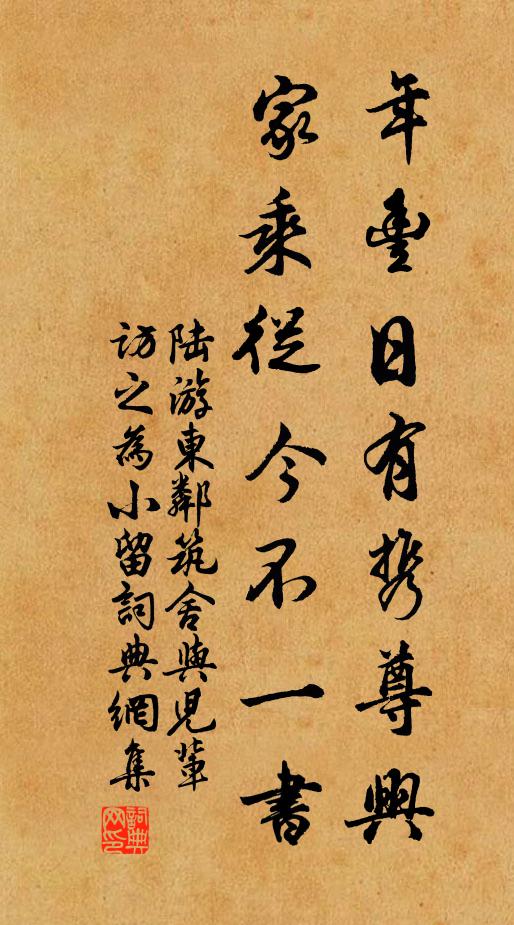 年豐日有携尊興
家乘從今不一書
陆游東鄰筑舍與児輩
訪之為小留詞典網集
詞典网印